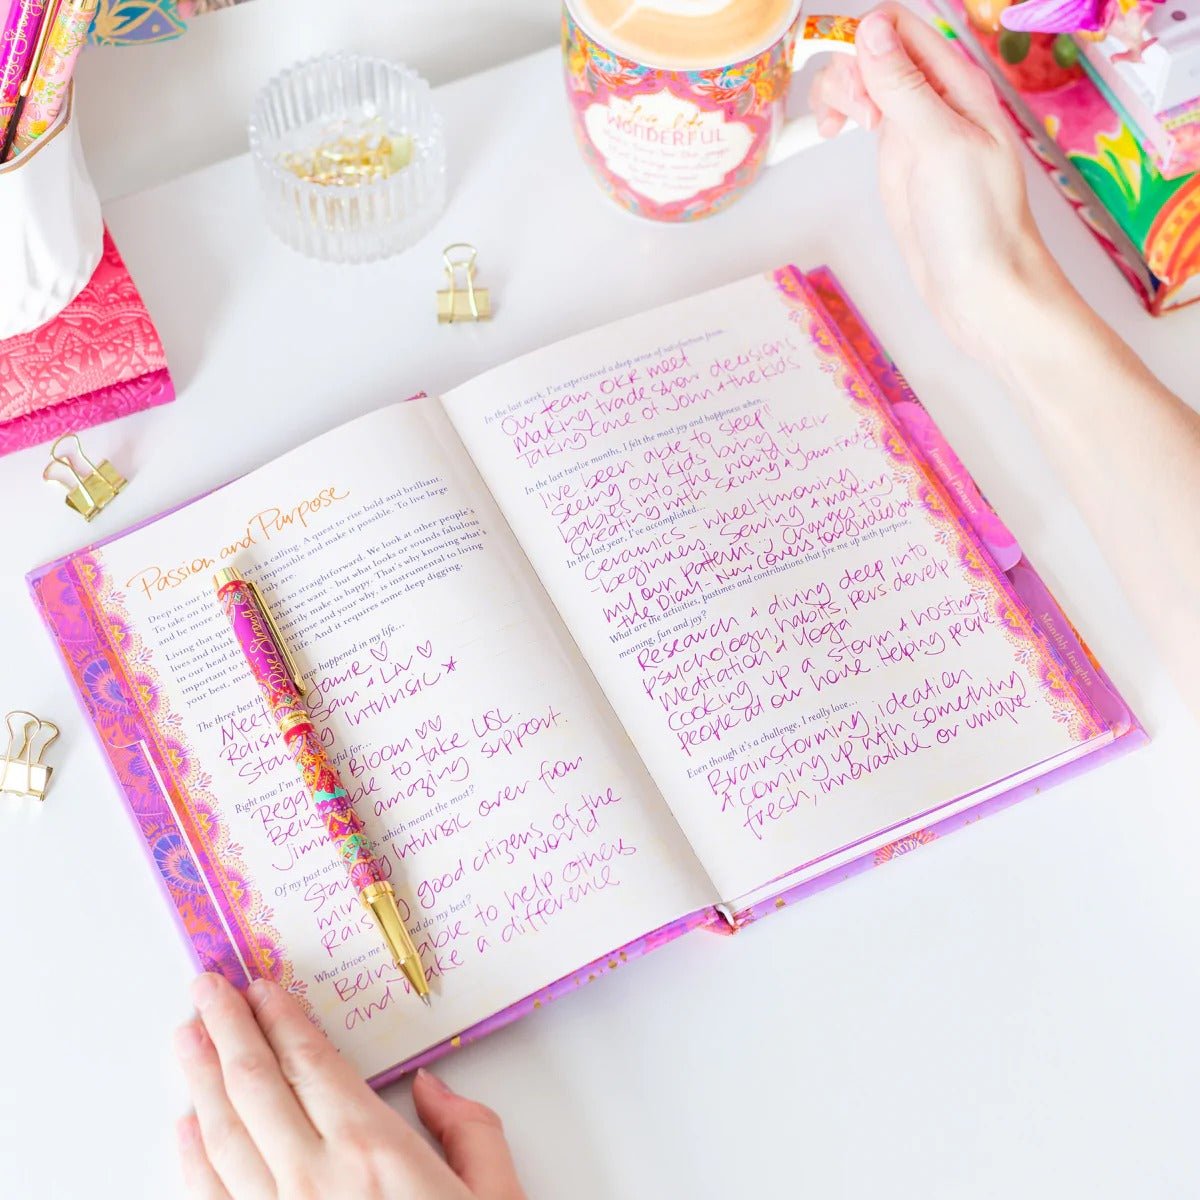 Rise Strong
live life
WONDERFUL
Passion and Purpose
Deep in our is a calling. A quest to rise bold and brilliant.
To take on the impossible and make it possible. To live large
and be more
Living that ways so straightforward. We look at other people's
lives and think what we want, but what looks or sounds fabulous
in our head do necessarily make us happy. That's why knowing what's
important to purpose and your why, is instrumental to living
your best, most life. And it requires some deep digging.
The three best have happened in my life…
Meet Jamie ♡
Raising Sam & Liv ♡
Star Intrinsic *
Right now I'm grateful for…
Reggie Bloom ♡♡
Being able to take LSL.
Jimm amazing support.
Of my past ach which meant the most?
Starting Intrinsic over from
mine
Raising good citizens of the
world
What drives me and do my best?
Being able to help others
and make a difference
In the last week, I've experienced a deep sense of satisfaction from…
Our team OKR meet
Making tradeshow decisions
Taking care of John & the kids
In the last twelve months, I felt the most joy and happiness when…
I've been able to sleep!!
seeing our kids bring their
babies into the world
Creating with sewing & Jam Factory
In the last year, I've accomplished…
Ceramics - wheel throwing
- beginners, sewing & making
my own patterns, changes to
the Diary - New Covers for guided jn
What are the activities, pastimes and contributions that fire me up with purpose,
meaning, fun and joy?
Research & diving deep into
psychology, habits, pers. develp
Meditation & Yoga
Cooking up a storm & hosting
people at our house. Helping people
Even though it's a challenge, I really love…
Brainstorming, ideation
& coming up with something
fresh, innovative or unique.
Journal Planner
Monthly Insights